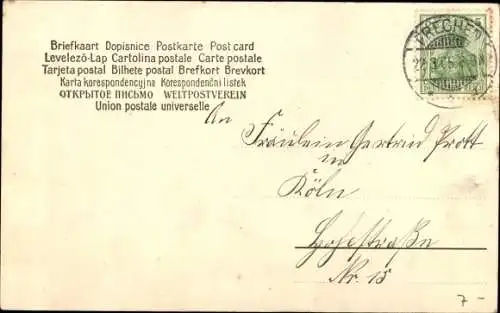 Briefkaart Dopisnice Postkarte Post card
Levelező-Lap Cartolina postale Carte postale
Tarjeta postal Bilhete postal Brefkort Brevkort
Karta korespondencyjna Korespondenční lístek
ОТКРЫТОЕ ПИСЬМО WELTPOSTVEREIN
Union postale universelle
FRECHEN
An
Fräulein Gertrud Prott
in
Köln
Hohestraße
Nr. 15
7-